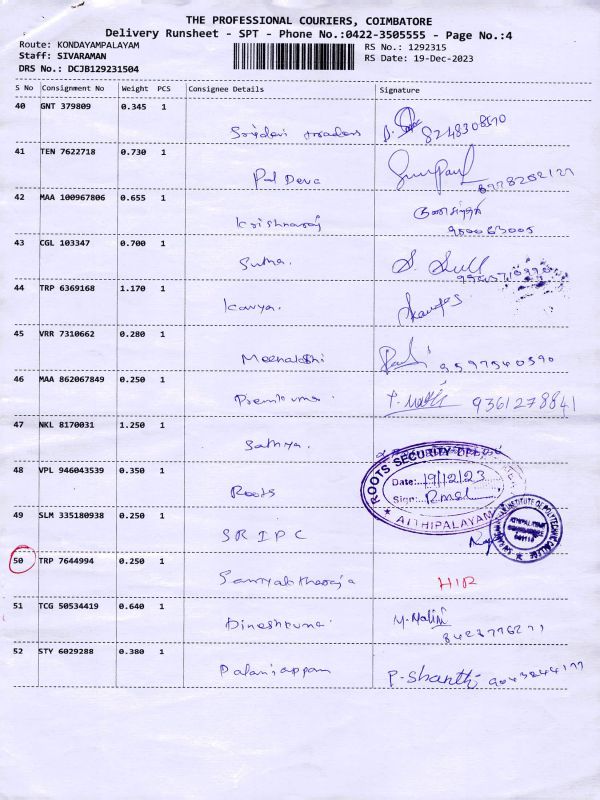 THE PROFESSIONAL COURIERS, COIMBATORE
Delivery Runsheet - SPT - Phone No.:0422-3505555 - Page No.:4
Route: KONDAYAMPALAYAM
RS No.: 1292315
Staff: SIVARAMAN
RS Date: 19-Dec-2023
DRS No.: DCJB129231504
S No Consignment No Weight PCS Consignee Details Signature
40 GNT 379809 0.345 1
41 TEN 7622718 0.730 1 Pal Deva
42 MAA 100967806 0.655 1 Krishnaraj
43 CGL 103347 0.700 1 Sutha.
44 TRP 6369168 1.170 1 Kavya.
45 VRR 7310662 0.280 1 Meenakshi
46 MAA 862067849 0.250 1 9361278841
47 NKL 8170031 1.250 1 Sathya.
48 VPL 946043539 0.350 1 Roots
ROOTS SECURITY
Date: 19/12/23
Sign:
ATHIPALAYAM
49 SLM 335180938 0.250 1 SRIPC
INSTITUTE OF POLYTECHNIC COLLEGE
50 TRP 7644994 0.250 1 HIR
51 TCG 50534419 0.640 1 M. Malini
52 STY 6029288 0.380 1 Palaniappan P. Shanthi